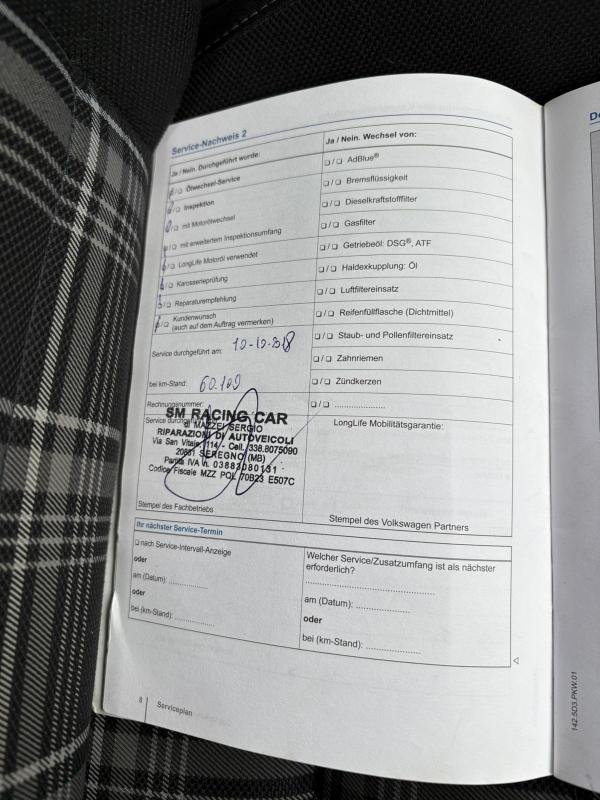 Service-Nachweis 2
Ja / Nein. Durchgeführt wurde:
❏/❏ Ölwechsel-Service
❏/❏ Inspektion
❏/❏ mit Motorölwechsel
❏/❏ mit erweitertem Inspektionsumfang
❏/❏ LongLife Motoröl verwendet
❏/❏ Karosserieprüfung
❏/❏ Reparaturempfehlung
❏/❏ Kundenwunsch
(auch auf dem Auftrag vermerken)
Service durchgeführt am:
bei km-Stand: 60.100
Rechnungsnummer:
Service durchgeführt
SM RACING CAR
di MAZZEI SERGIO
RIPARAZIONI DI AUTOVEICOLI
Via San Vitale, 114 - Cell. 338.8075090
20831 SEREGNO (MB)
Partita IVA n. 03883080131
Codice Fiscale MZZ PQL 70B23 E507C
Stempel des Fachbetriebs
Ja / Nein. Wechsel von:
❏/❏ AdBlue®
❏/❏ Bremsflüssigkeit
❏/❏ Dieselkraftstofffilter
❏/❏ Gasfilter
❏/❏ Getriebeöl: DSG®, ATF
❏/❏ Haldexkupplung: Öl
❏/❏ Luftfiltereinsatz
❏/❏ Reifenfüllflasche (Dichtmittel)
❏/❏ Staub- und Pollenfiltereinsatz
❏/❏ Zahnriemen
❏/❏ Zündkerzen
❏/❏ .....................
LongLife Mobilitätsgarantie:
Stempel des Volkswagen Partners
Ihr nächster Service-Termin
❏ nach Service-Intervall-Anzeige
oder
am (Datum): ................
oder
bei (km-Stand): ................
Welcher Service/Zusatzumfang ist als nächster
erforderlich?
......................................................
am (Datum): ......................
oder
bei (km-Stand): ......................
8 Serviceplan
142.5D3.PKW.01